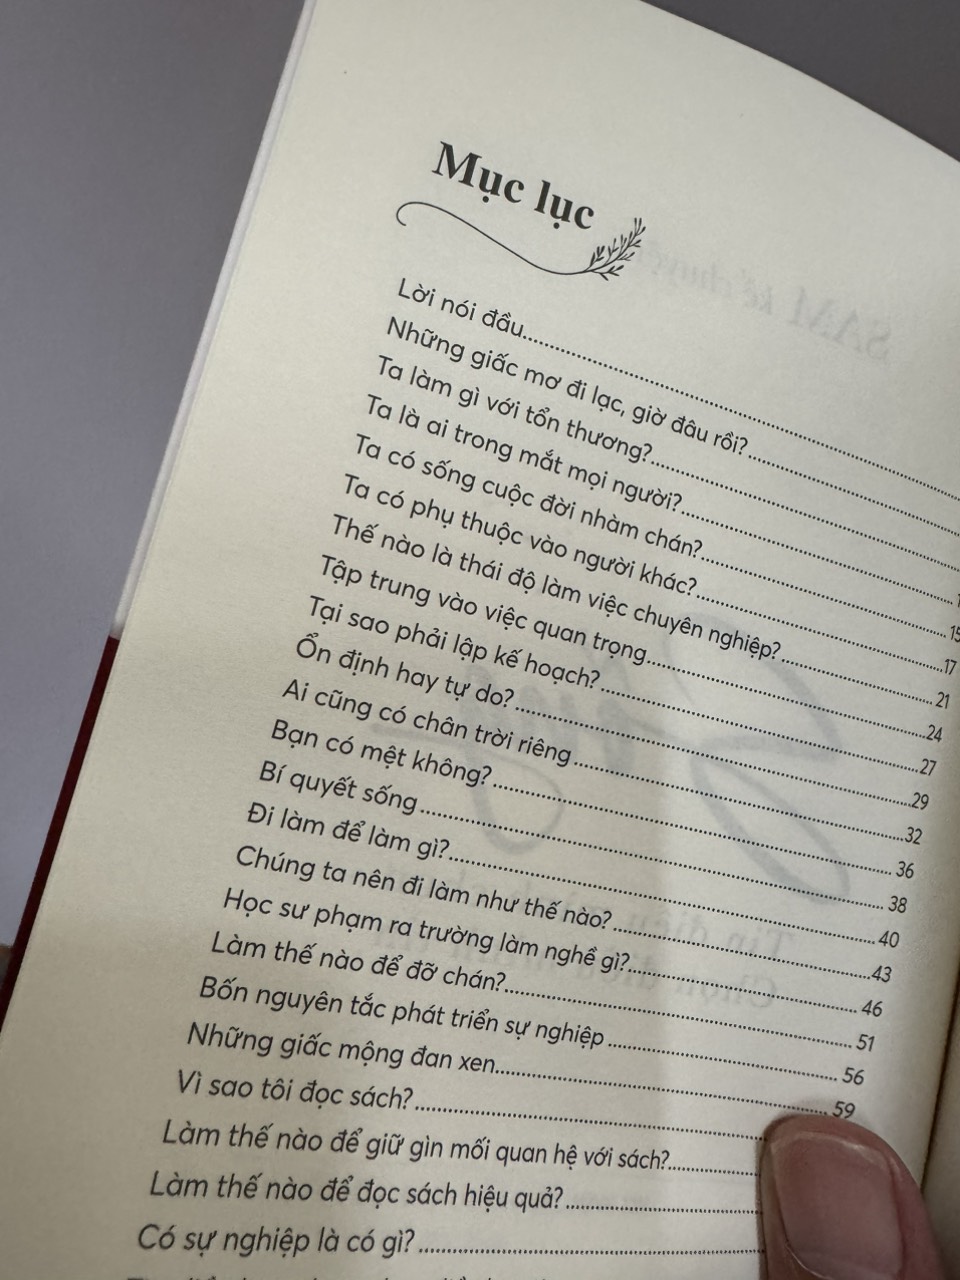 Mục lục
Lời nói đầu
Những giấc mơ đi lạc, giờ đâu rồi?
Ta làm gì với tổn thương?
Ta là ai trong mắt mọi người?
Ta có sống cuộc đời nhàm chán? 15
Ta có phụ thuộc vào người khác? 17
Thế nào là thái độ làm việc chuyên nghiệp? 21
Tập trung vào việc quan trọng 24
Tại sao phải lập kế hoạch? 27
Ổn định hay tự do? 29
Ai cũng có chân trời riêng 32
Bạn có mệt không? 36
Bí quyết sống 38
Đi làm để làm gì? 40
Chúng ta nên đi làm như thế nào? 43
Học sư phạm ra trường làm nghề gì? 46
Làm thế nào để đỡ chán? 51
Bốn nguyên tắc phát triển sự nghiệp 56
Những giấc mộng đan xen 59
Vì sao tôi đọc sách?
Làm thế nào để giữ gìn mối quan hệ với sách?
Làm thế nào để đọc sách hiệu quả?
Có sự nghiệp là có gì?